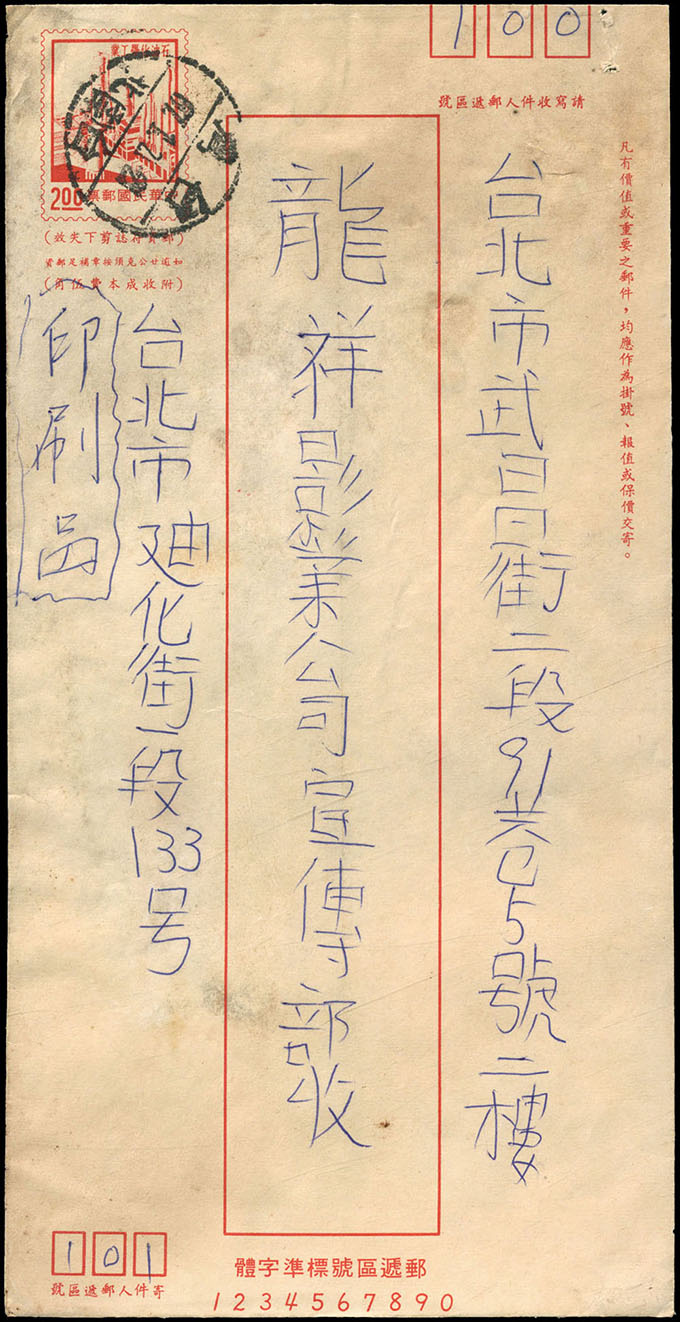 100
請寫收件人郵遞區號
凡有價值或重要之郵件，均應作為掛號、報值或保價交寄。
台北市武昌街二段91巷5號二樓
龍祥影業公司宣傳部收
石油化學工業
中華民國郵票
2.00
(郵資符誌剪下失效)
如逾廿公克須按章補足郵資
(附收成本費伍角)
台北市迪化街一段133号
印刷品
101
寄件人郵遞區號
郵遞區號標準字體
1234567890